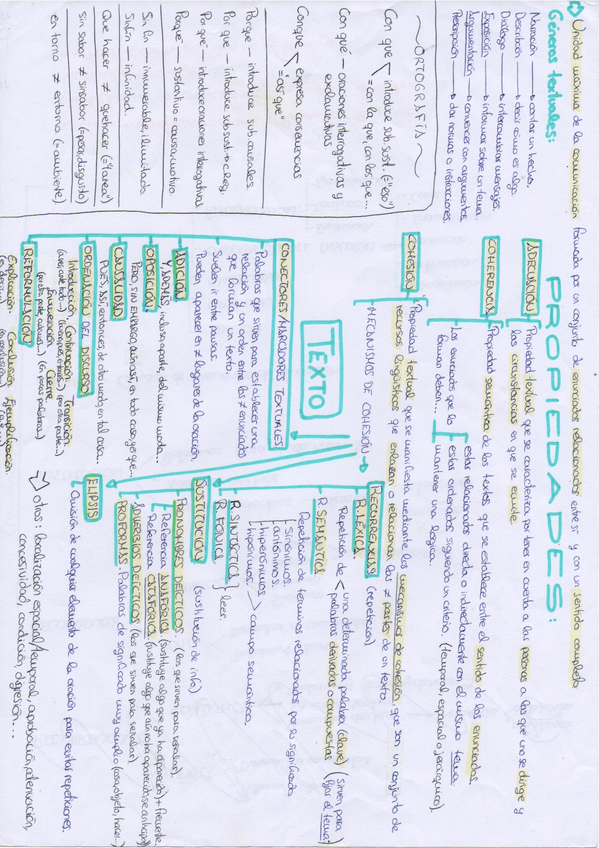 Unidad máxima de la comunicación formada por un conjunto de enunciados relacionados entre sí y con un sentido completo
Géneros textuales:
Narración → contar un hecho.
Descripción → decir cómo es algo.
Diálogo → intercambiar mensajes.
Exposición → informar sobre un tema.
Argumentación → convencer con argumentos.
Prescripción → dar normas o instrucciones.
~ORTOGRAFÍA~
Con que introduce sub. sust.
= con la que, con los que...
Con qué – oraciones interrogativas y
exclamativas
Conque expresa consecuencias
= "así que"
Porque – introduce sub. causales
Por que – introduce sub. sust
Por qué – introduce oraciones interrogativas
Porqué – sustantivo = causa, motivo
Sin fin – innumerable, ilimitado
Sinfín – infinidad
Que hacer ≠ quehacer (= "tarea")
Sin sabor ≠ sinsabor (= pesar, disgusto)
en torno ≠ entorno (= ambiente)
PROPIEDADES:
ADECUACIÓN Propiedad textual que se caracteriza por tener en cuenta a las personas a las que uno se dirige y
las circunstancias en que se emite.
COHERENCIA Propiedad semántica de los textos que se establece entre el sentido de los enunciados.
Los enunciados que la
forman deben...
estar relacionados directa o indirectamente con el mismo tema.
estar ordenados siguiendo un criterio, (temporal, espacial o jerárquico).
mantener una lógica.
COHESIÓN Propiedad textual que se manifiesta mediante los mecanismos de cohesión, que son un conjunto de
recursos lingüísticos que enlazan o relacionan las ≠ partes de un texto.
MECANISMOS DE COHESIÓN
TEXTO
CONECTORES / MARCADORES TEXTUALES
Palabras que sirven para establecer una
relación y un orden entre los ≠ enunciados
que forman un texto.
Suelen ir entre pausas.
Pueden aparecer en ≠ lugares de la oración
ADICIÓN
Y, ADEMÁS, incluso, aparte, del mismo modo...
OPOSICIÓN
Pero, SIN EMBARGO, aun así, en todo caso, y eso que...
CAUSALIDAD
PUES, ASÍ, entonces, de otro modo, en tal caso...
ORDENACIÓN DE DISCURSO
Introducción Continuación Transición
Enumeración Cierre
REFORMULACIÓN
Explicación Conclusión Ejemplificación
RECURRENCIA (repetición)
R. LÉXICA
Repetición de
una determinada palabra (clave)
palabras derivadas o compuestas
Sirven para
fijar el tema
R. SEMÁNTICA
Repetición de términos relacionados por su significado
Sinónimos.
antónimos.
hiperónimos
hipónimos. → campo semántico.
R. SINTÁCTICA
R. FÓNICA
leer.
SUSTITUCIÓN (sustitución de info)
PRONOMBRES DEÍCTICOS... (los que sirven para señalar).
Referencia ANAFÓRICA (sustituye algo que ya ha aparecido) + frecuente
Referencia CATAFÓRICA (sustituye algo que aún no ha aparecido, se anticipa)
ADVERBIOS DEÍCTICOS (los que sirven para señalar)
PROFORMAS. Palabras de significado muy amplio (cosa, objeto, hacer...)
ELIPSIS
Omisión de cualquier elemento de la oración para evitar repeticiones.
→ otros: localización espacial/temporal, aprobación, atenuación,
concesividad, condición, digresión...